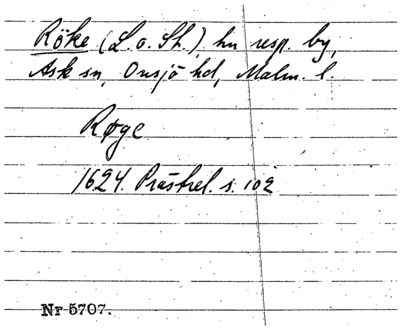 Röke (L. o. Sk.), hn resp. by,
Ask sn, Onsjö hd, Malm. l.
Røge
1624. Prästrel. s. 102
Nr 5707.